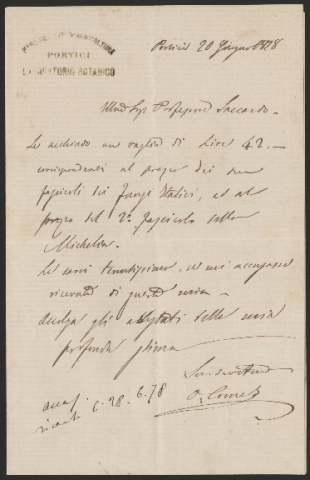 PORTICI
LABORATORIO BOTANICO
Portici 20 Giugno 1878
Professore Saccardo.
Le acchiudo un vaglia di Lire 42.—
corrispondenti al prezzo dei due
fascicoli dei Funghi Italici, ed al
prezzo del 2º fascicolo della
Michelia.
Le sarei tenutissimo, se mi accusasse
ricevuta di questa mia.
Accolga gli attestati della mia
profonda stima
O. Comes
6. 78